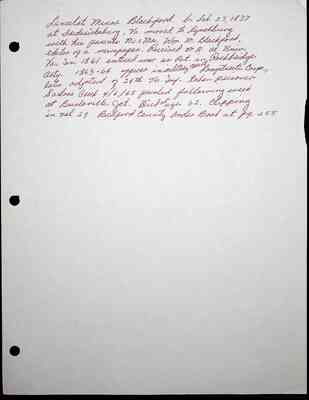 Lancelot Minor Blackford b. Feb 23, 1837
at Fredericksburg. He moved to Lynchburg
with his parents Mr & Mrs. Wm M. Blackford,
editor of a newspaper. Received M.A. at Univ.
Va. in 1861 entered war as Pvt. in Rockbridge
Arty. 1863-64 military court
later adjutant of 24th Va. Inf. taken prisoner
Sailors Creek 4/6/65 paroled following week
at Burkeville Jct. Died age 62. Clipping
in Vol 29 Bedford County Order Book at pg 255